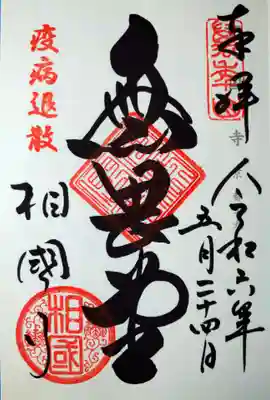 奉拝
令和六年
五月二十四日
無畏堂
疫病退散
相國寺
相国